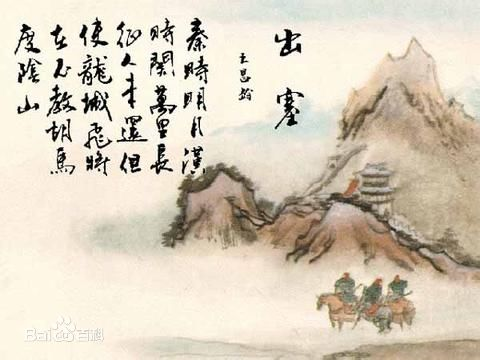 出塞
王昌齡
秦時明月漢
時關萬里長
征人未還但
使龍城飛將
在不教胡馬
度陰山
Baidu百科